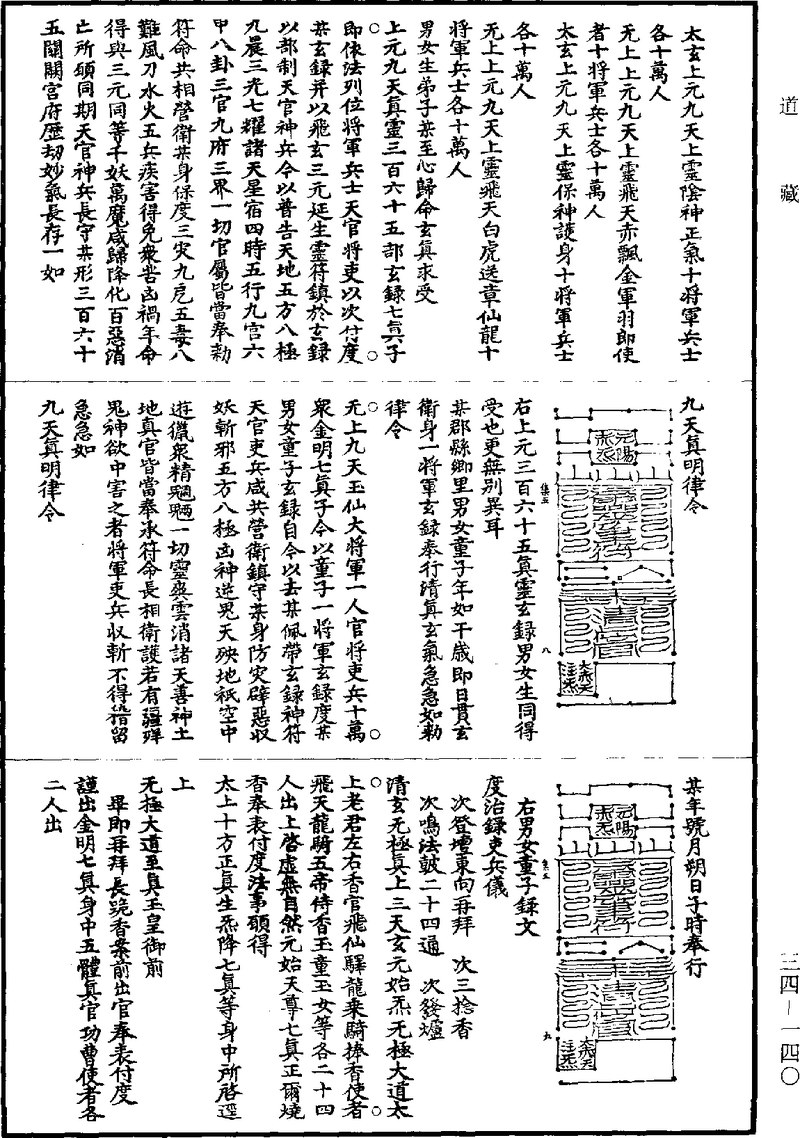 道藏
三四—一四〇
太玄上元九天上靈陰神正氣十將軍兵士
各十萬人
无上上元九天上靈飛天赤飄金軍羽郎使
者十將軍兵士各十萬人
太玄上元九天上靈保神護身十將軍兵士
各十萬人
无上上元九天上靈飛天白虎送章仙龍十
將軍兵士各十萬人
男女生弟子某至心歸命玄真求受
上元九天真靈三百六十五部玄錄七真子
即依法列位將軍兵士天官將吏以次付度
某玄錄并以飛玄三元延生靈符鎮於玄錄
以部制天官神兵令以普告天地五方八極
九晨三光七耀諸天星宿四時五行九宮六
甲八卦三官九府三界一切官屬皆當奉勑
符命共相營衛某身保度三灾九厄五毒八
難風刀水火五兵疾害得免衆苦凶禍年命
得與三元同等千妖萬魔咸歸降化百惡消
亡所願同期天官神兵長守某形三百六十
五關關宮府歷劫妙氣長存一如
九天真明律令
元陽
赤炁
大飛天
注炁
集五 八
右上元三百六十五真靈玄錄男女生同得
受也更無別異耳
某郡縣鄉里男女童子年如干歲即日貫玄
衛身一將軍玄錄奉行清真玄氣急急如勑
律令
无上九天玉仙大將軍一人官將吏兵十萬
衆金明七真子今以童子一將軍玄錄度某
男女童子玄錄自今以去某佩帶玄錄神符
天官吏兵咸共營衛鎮守某身防灾辟惡収
妖斬邪五方八極凶神逆鬼天殃地祇空中
遊獵衆精魍魎一切靈與雲消諸天善神土
地真官皆當奉承符命長相衛護若有彊殍
鬼神欲中害之者將軍吏兵収斬不得稽留
急急如
九天真明律令
某年號月朔日子時奉行
元陽
赤炁
大飛天
注炁
集五 九
右男女童子錄文
度治錄吏兵儀
次登壇東向再拜 次三捻香
次鳴法鼓二十四通 次發爐
清玄无極真上三天玄元始炁无極大道太
上老君左右香官飛仙驛龍乘騎捧香使者
飛天龍騎五帝侍香玉童玉女等各二十四
人出上啓虛無自然元始天尊七真正爾燒
香奉表付度法事願得
太上十方正真生炁降七真等身中所啓逕
上
无極大道至真玉皇御前
畢即再拜長跪香案前出官奉表付度
謹出金明七真身中五體真官功曹使者各
二人出